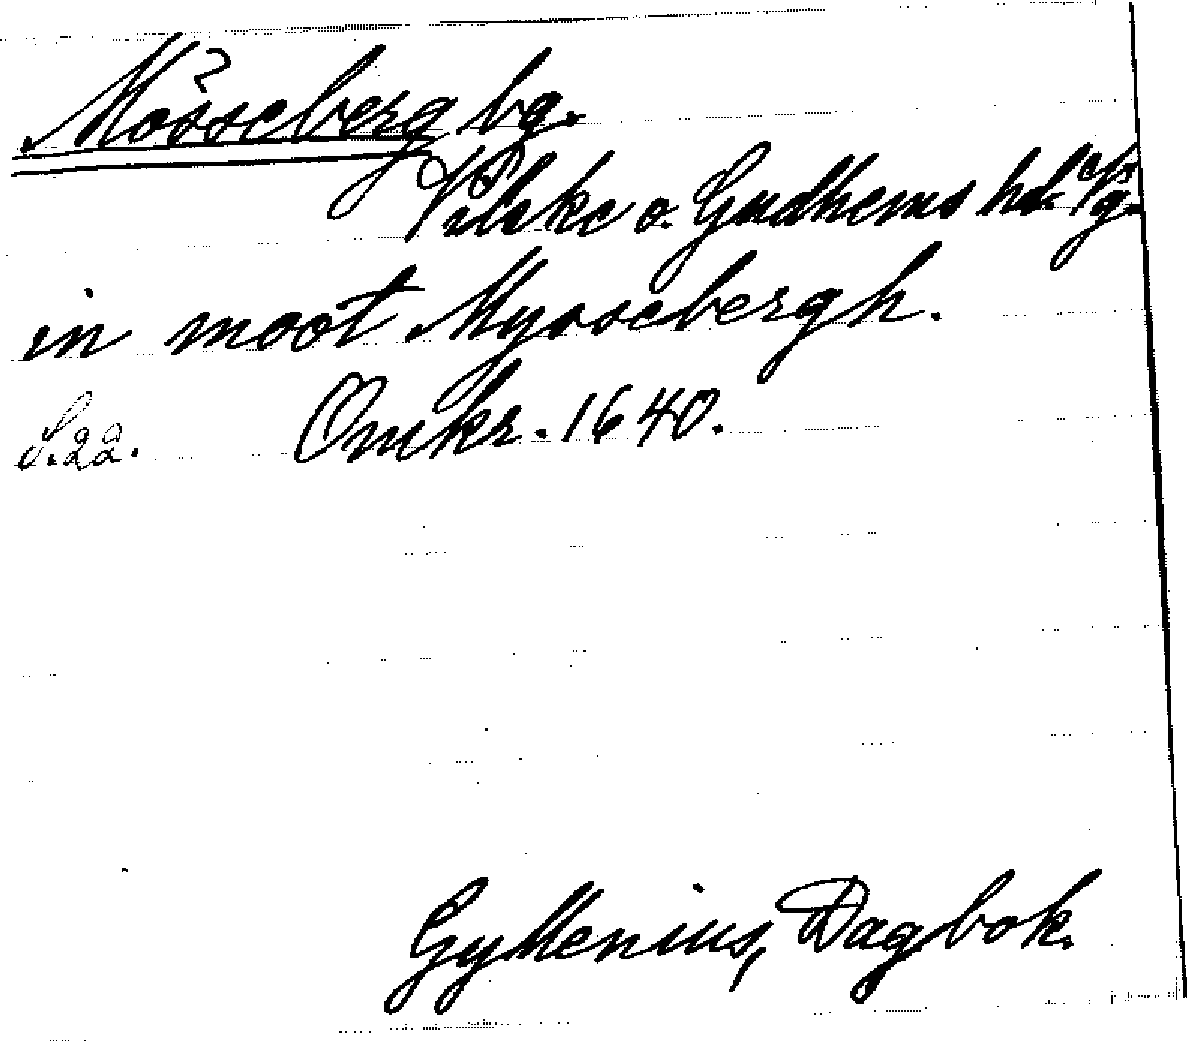 Mösseberg bg.
Vilske o. Gudhems hd. Vg.
in moot Myossebergh.
S. 22. Omkr. 1640.
Gyllenius, Dagbok.